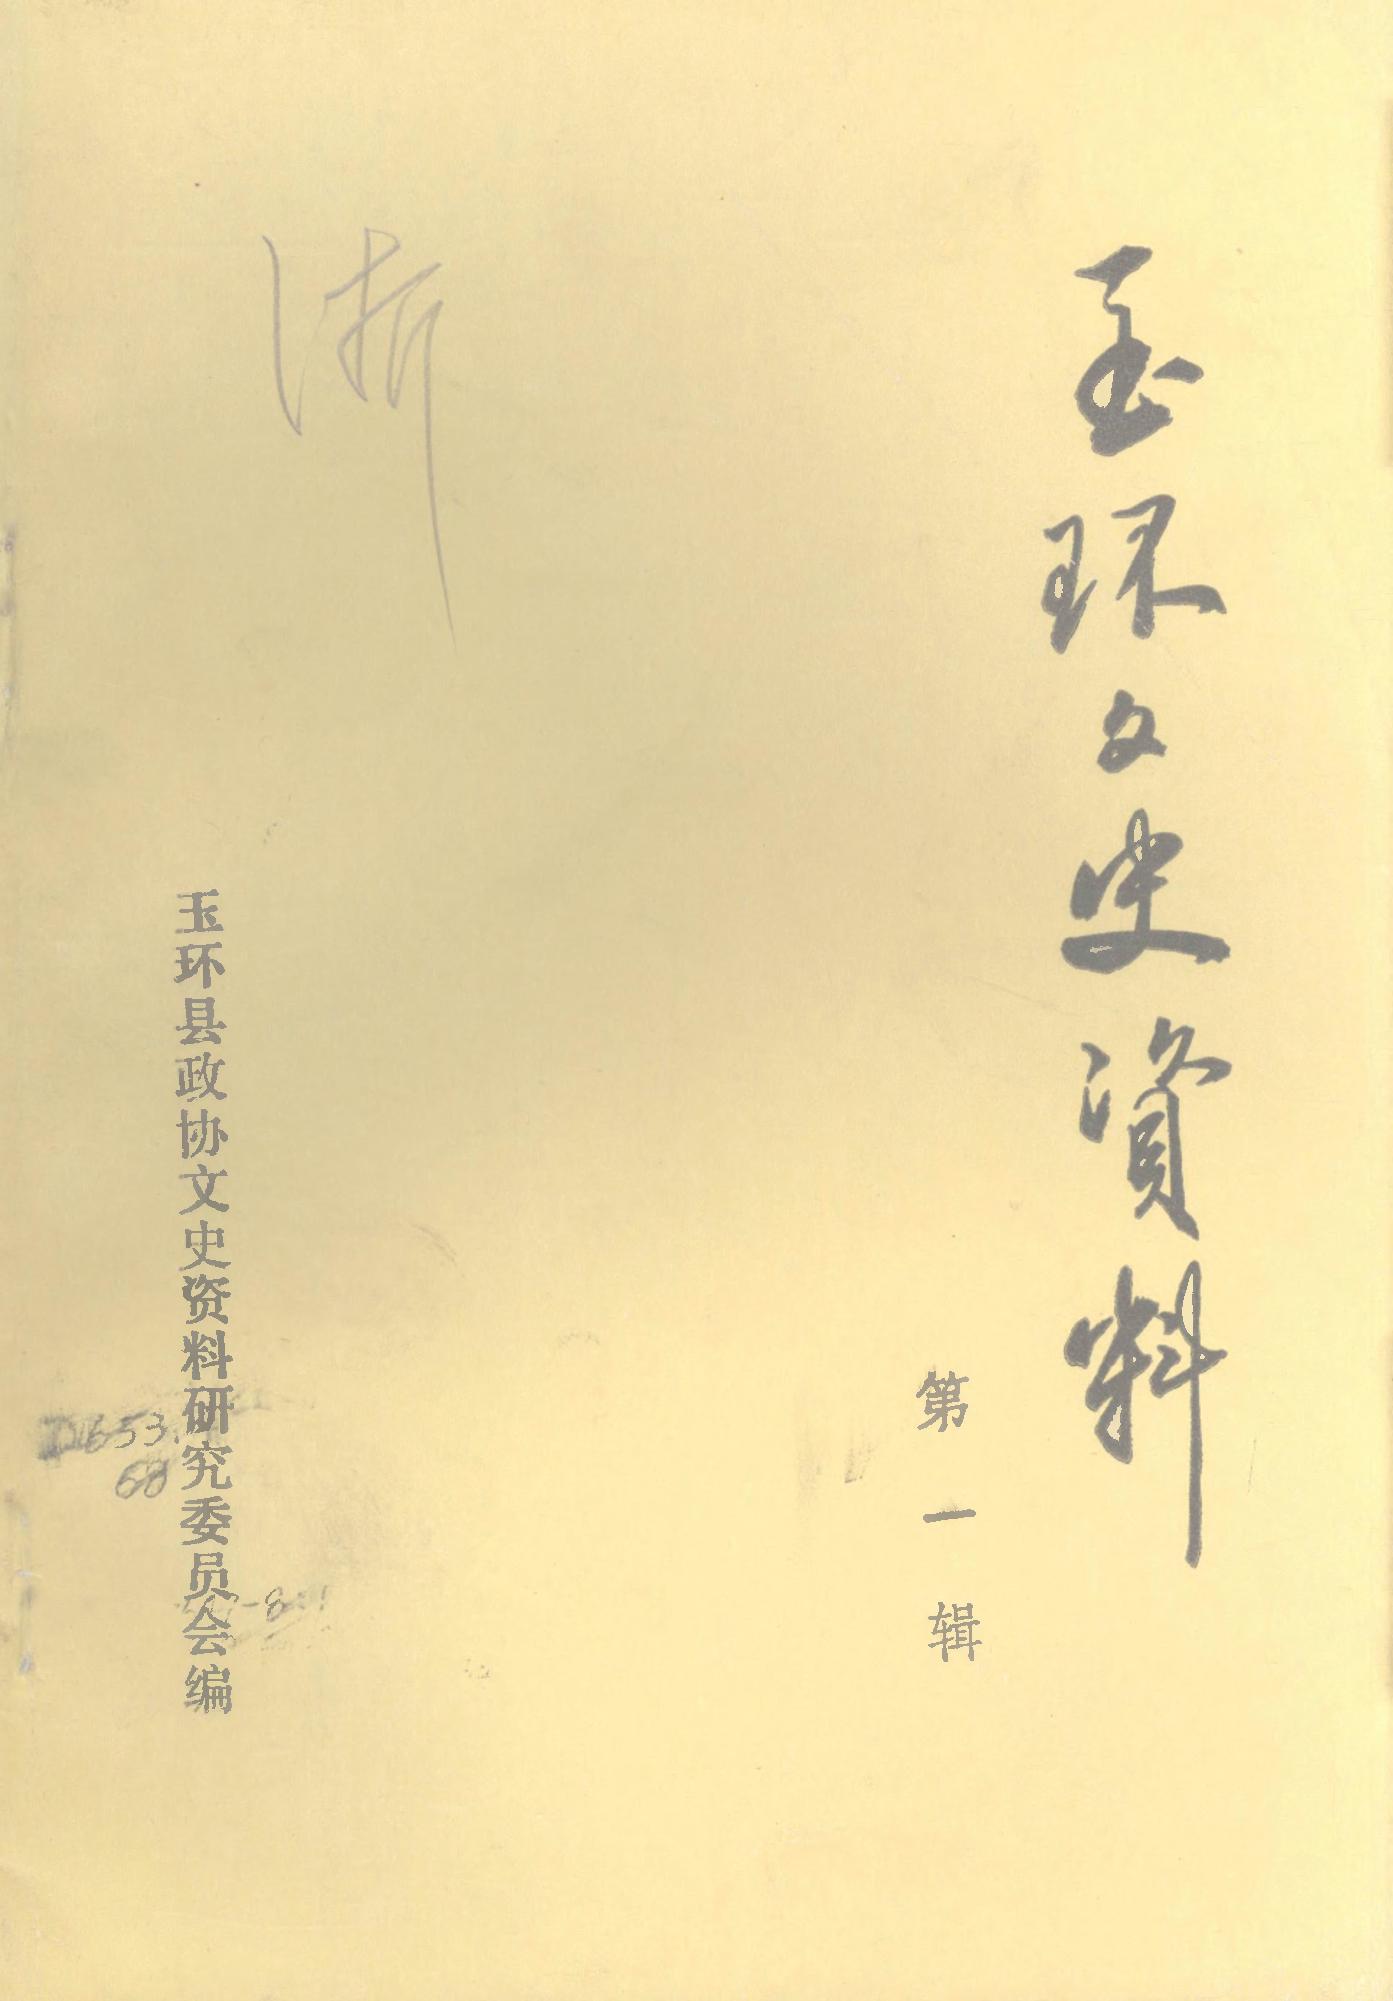 玉环文史資料
第一辑
浙
玉环县政协文史资料研究委员会编
D653.
68